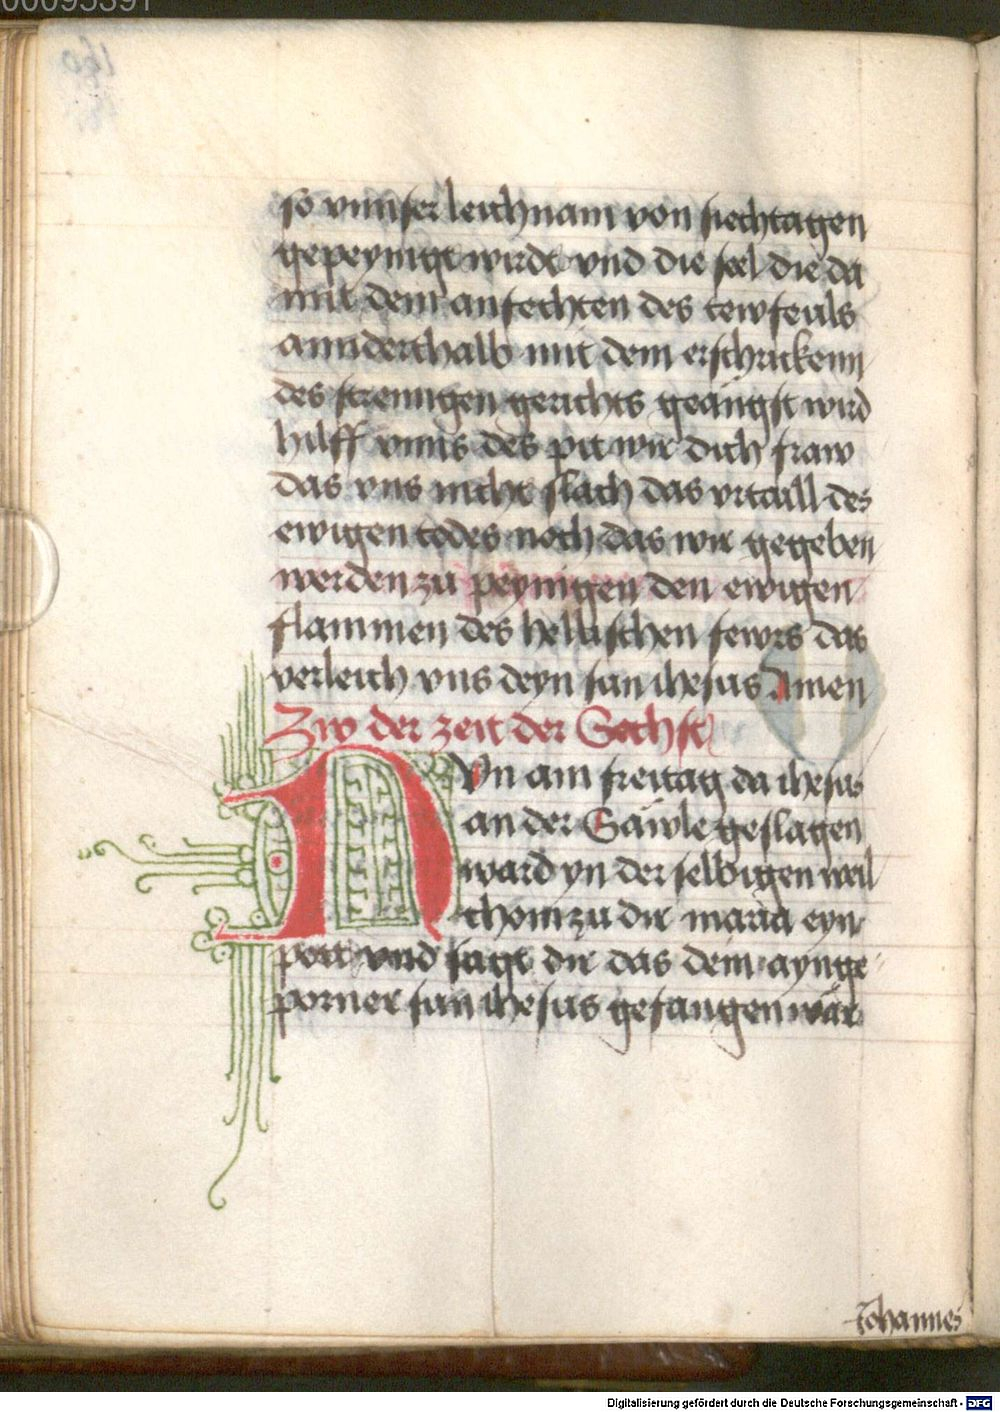 00095391
so vnnser leichnam von siechtagen
gepeynigt wirdt vnd die seel die da
mit dem anfechten des tewfeuls
annderthalb mit dem erschrickenn
des strenngen gerichts geängst wird
hilff vnns des pit wir dich fraw
das vns nicht slach das vrtaill des
ewigen todes noch das wir gegeben
werden zu peynigen den ewigen
flammen des hellischen fewrs das
verleich vns deyn sun ihesus Amen
Zw der zeit der Sechst
NVn am freitag da ihesus
an der Säwle geslagen
ward yn der selbigen weil
chom zu dir maria eyn
pott vnd sagt dir das dem aynge
porner sun ihesus gefangen wär
Johannes
Digitalisierung gefördert durch die Deutsche Forschungsgemeinschaft - DFG